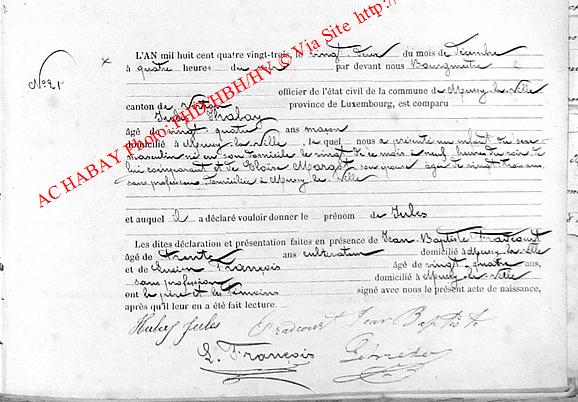 N° 21
L'AN mil huit cent quatre vingt-trois, le vingt deux du mois de décembre
à quatre heures du soir par devant nous Bourgmestre
officier de l'état civil de la commune de Mussy-la-Ville
canton de Virton province de Luxembourg, est comparu
Jules Habay
âgé de vingt quatre ans maçon
domicilié à Mussy-la-Ville, lequel nous a présenté un enfant du sexe
masculin né en son domicile le vingt de ce mois à neuf heures du soir de
lui comparant et de Marget son épouse âgée de vingt trois ans
sans profession domiciliée à Mussy-la-Ville
et auquel il a déclaré vouloir donner le prénom de Jules
Les dites déclaration et présentation faites en présence de Jean Baptiste Fradcourt
âgé de Trente ans cultivateur domicilié à Mussy-la-Ville
et de Lucien François âgé de vingt-quatre ans,
sans profession domicilié à Mussy-la-Ville
ont le père et les témoins signé avec nous le présent acte de naissance,
après qu'il leur en a été fait lecture.
Habay jules Fradcourt Jean Baptiste
L. François
AC HABAY Photo: PHD/HBH/HV © Via Site http://www